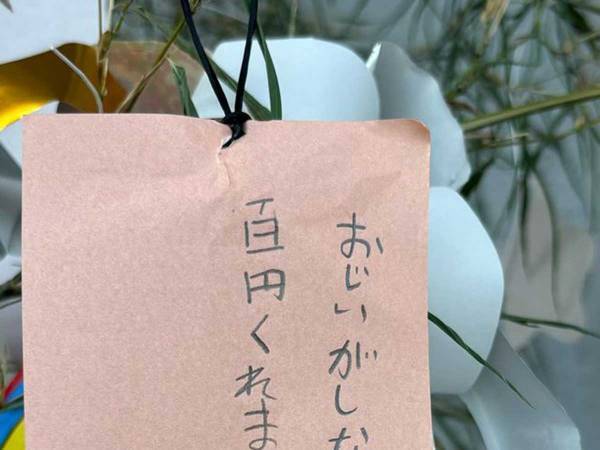 おじいがしな
百円くれま